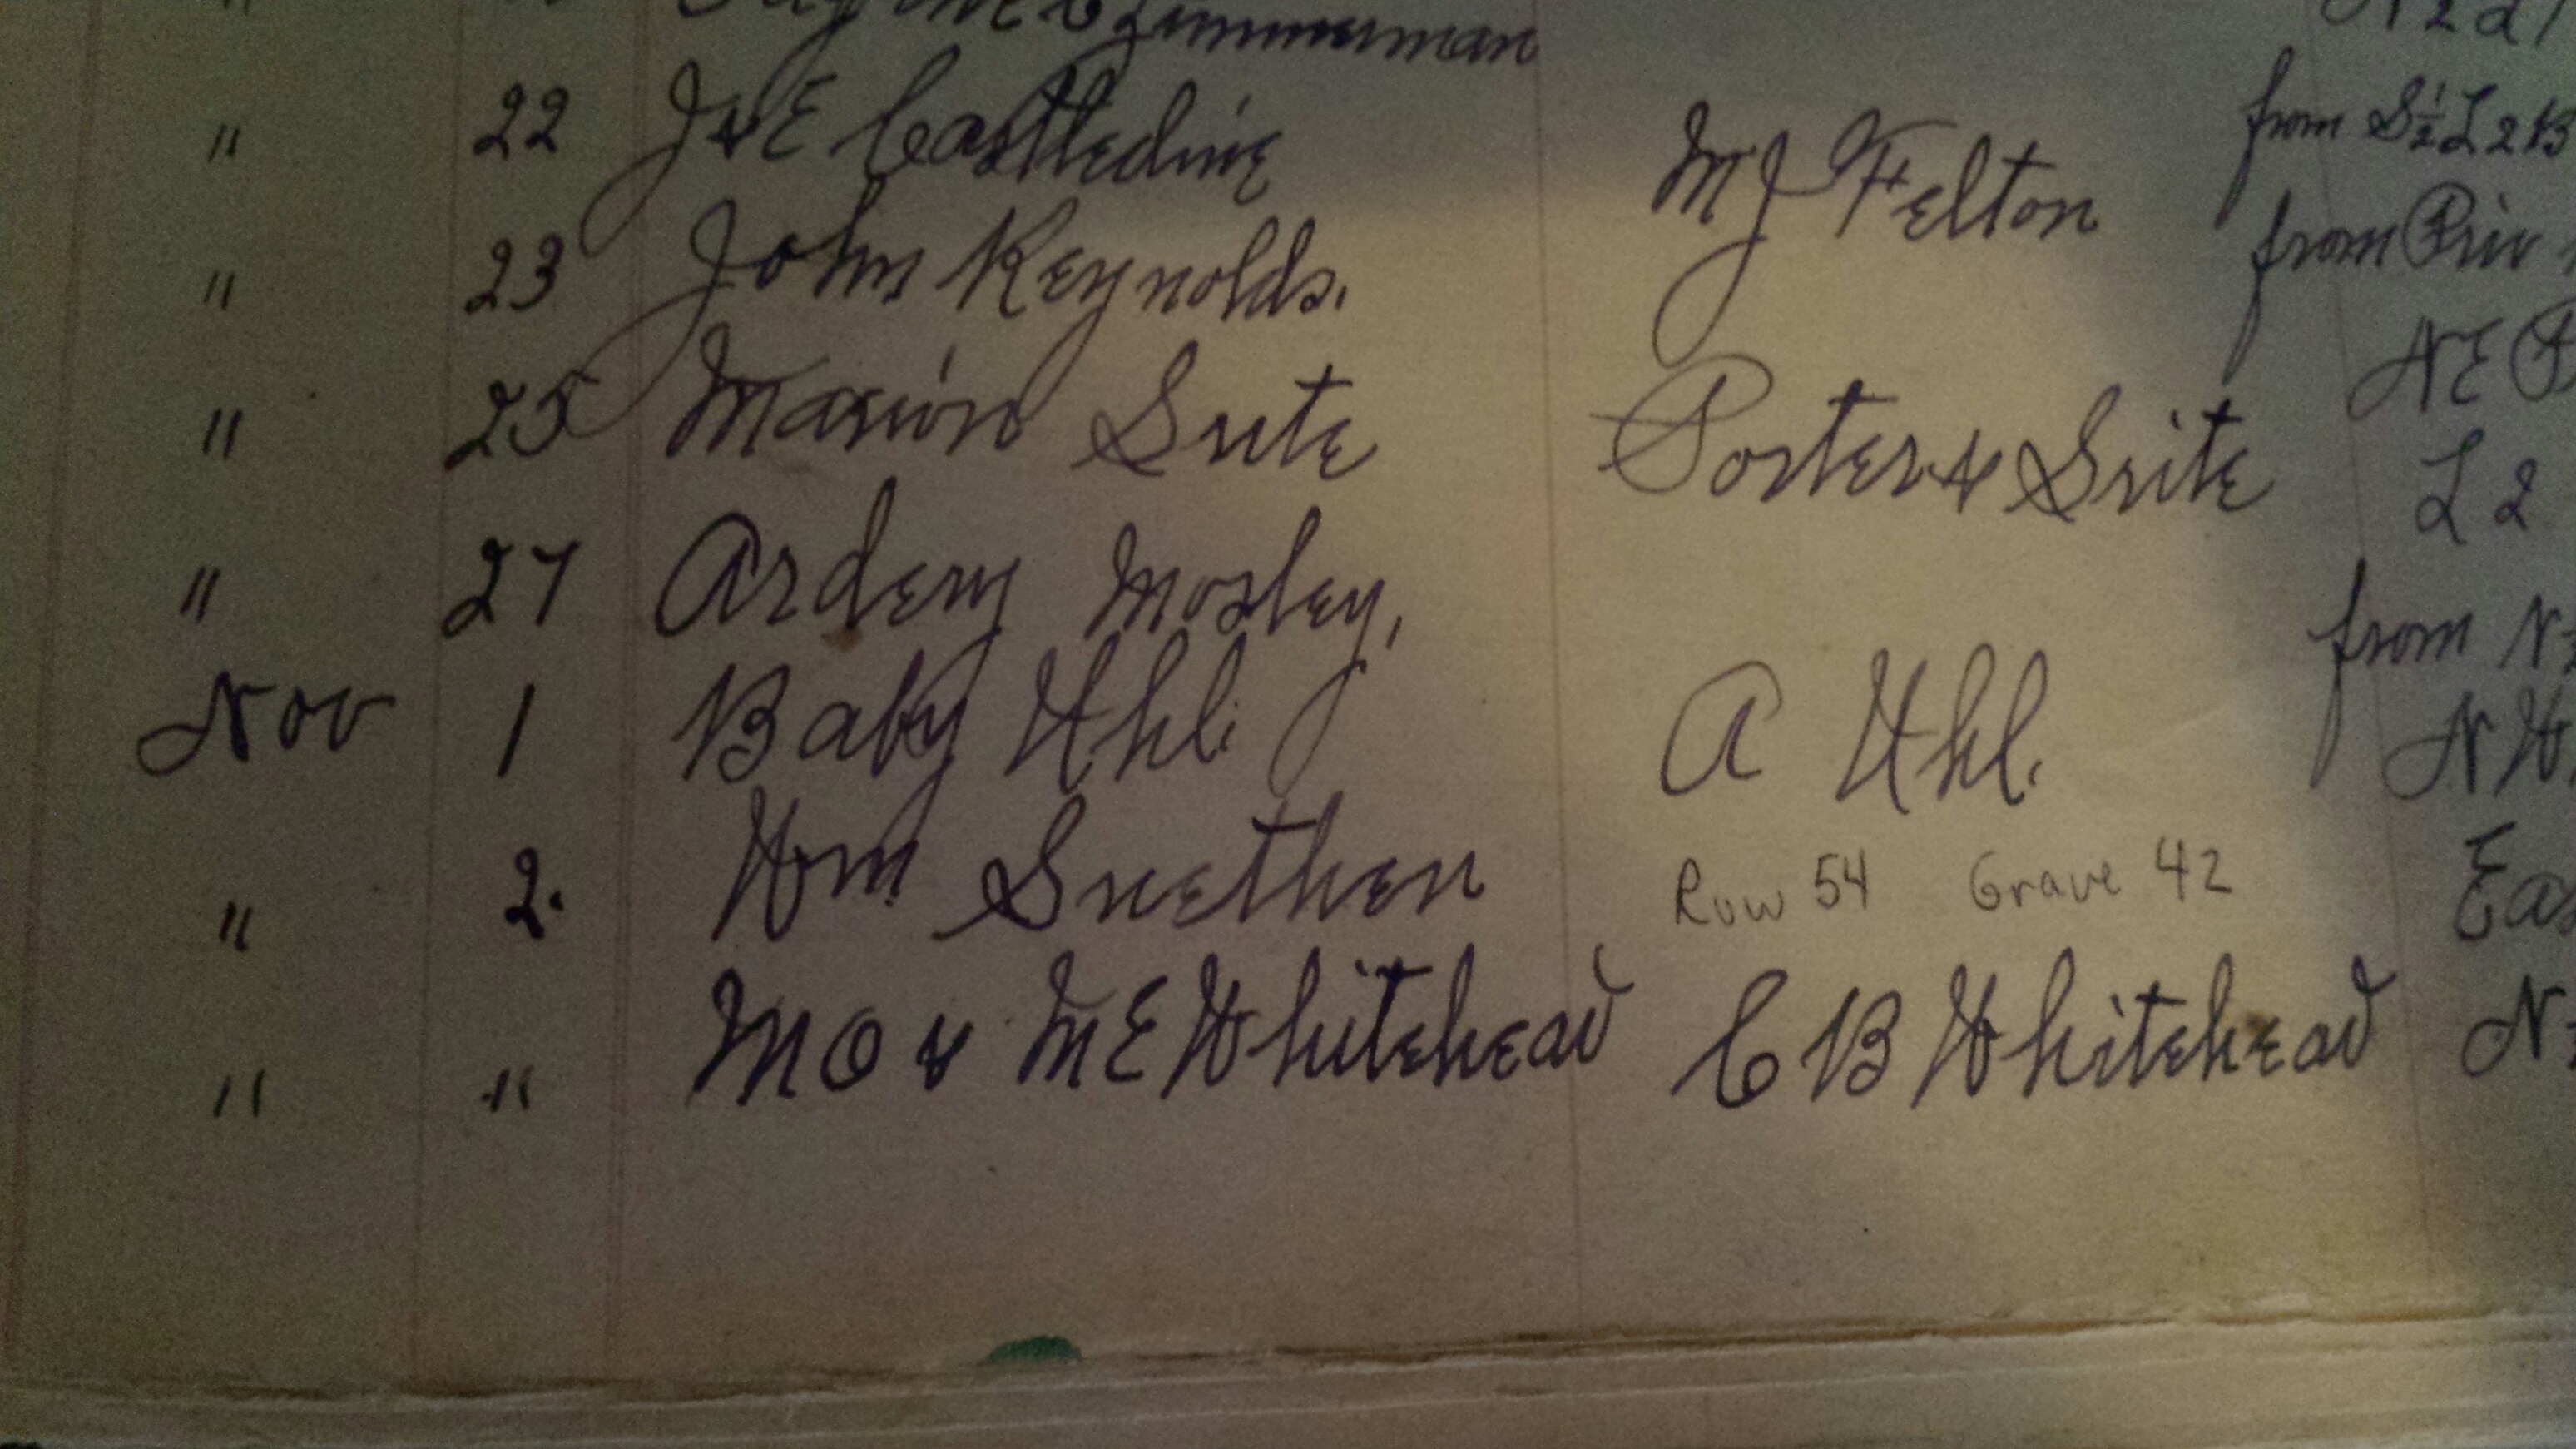 Zimmerman N 2 d
" 22 J & E Castledine from S½ L 2 B
" 23 John Reynolds. M J Felton from Priv
" 25 Marion Sute Porter & Sute NE P
L 2
" 27 Ardery Mosley, from N
Nov 1 Baby Uhl. A Uhl. N W
" 2. Wm Snethen Row 54 Grave 42 Eas
" " M O & M E Whitehead C B Whitehead N